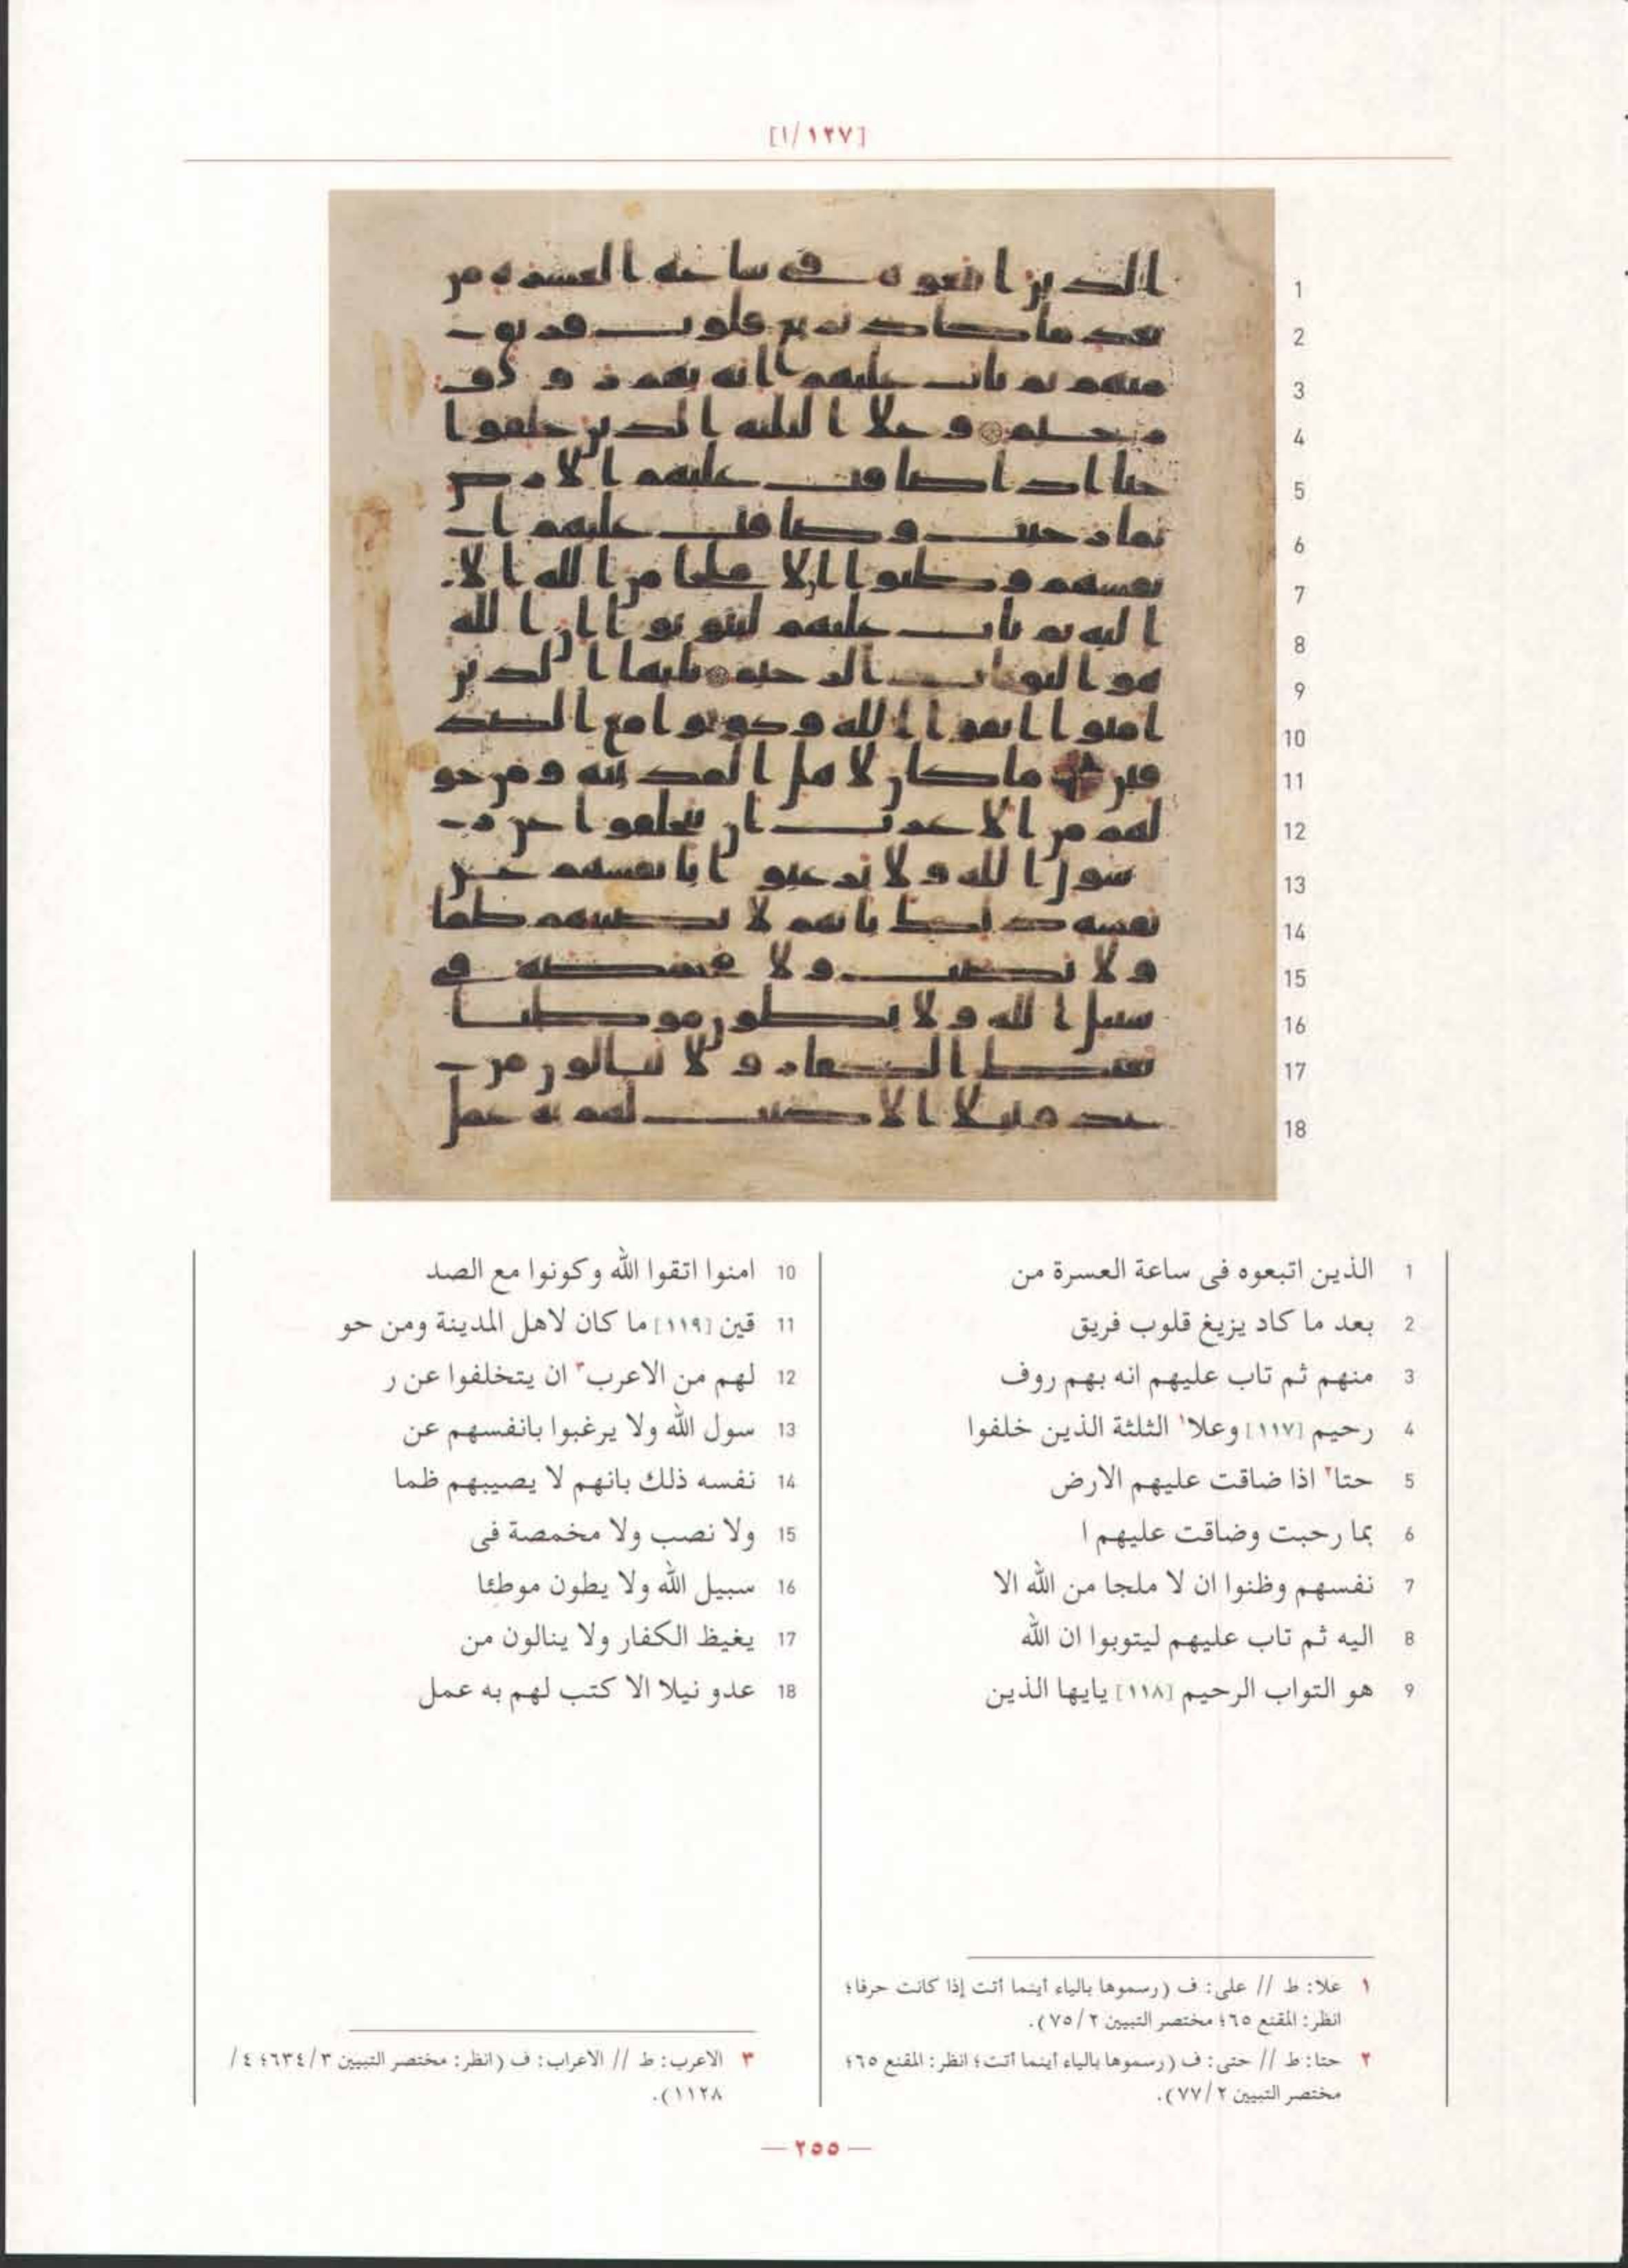 [١/١٢٧]
1 الذين اتبعوه فى ساعة العسرة من
2 بعد ما كاد يزيغ قلوب فريق
3 منهم ثم تاب عليهم انه بهم روف
4 رحيم [١١٧] وعلا١ الثلثة الذين خلفوا
5 حتا٢ اذا ضاقت عليهم الارض
6 بما رحبت وضاقت عليهم ا
7 نفسهم وظنوا ان لا ملجا من الله الا
8 اليه ثم تاب عليهم ليتوبوا ان الله
9 هو التواب الرحيم [١١٨] يايها الذين
10 امنوا اتقوا الله وكونوا مع الصد
11 قين [١١٩] ما كان لاهل المدينة ومن حو
12 لهم من الاعرب٣ ان يتخلفوا عن ر
13 سول الله ولا يرغبوا بانفسهم عن
14 نفسه ذلك بانهم لا يصيبهم ظما
15 ولا نصب ولا مخمصة فى
16 سبيل الله ولا يطون موطئا
17 يغيظ الكفار ولا ينالون من
18 عدو نيلا الا كتب لهم به عمل
١ علا: ط // على: ف (رسموها بالياء أينما أتت إذا كانت حرفا؛
انظر: المقنع ٦٥؛ مختصر التبيين ٢/ ٧٥).
٢ حتا: ط // حتى: ف (رسموها بالياء أينما أتت؛ انظر: المقنع ٦٥؛
مختصر التبيين ٢/ ٧٧).
٣ الاعرب: ط // الاعراب: ف (انظر: مختصر التبيين ٣/ ٦٣٤؛ ٤/
١١٢٨).
— ٢٥٥ —